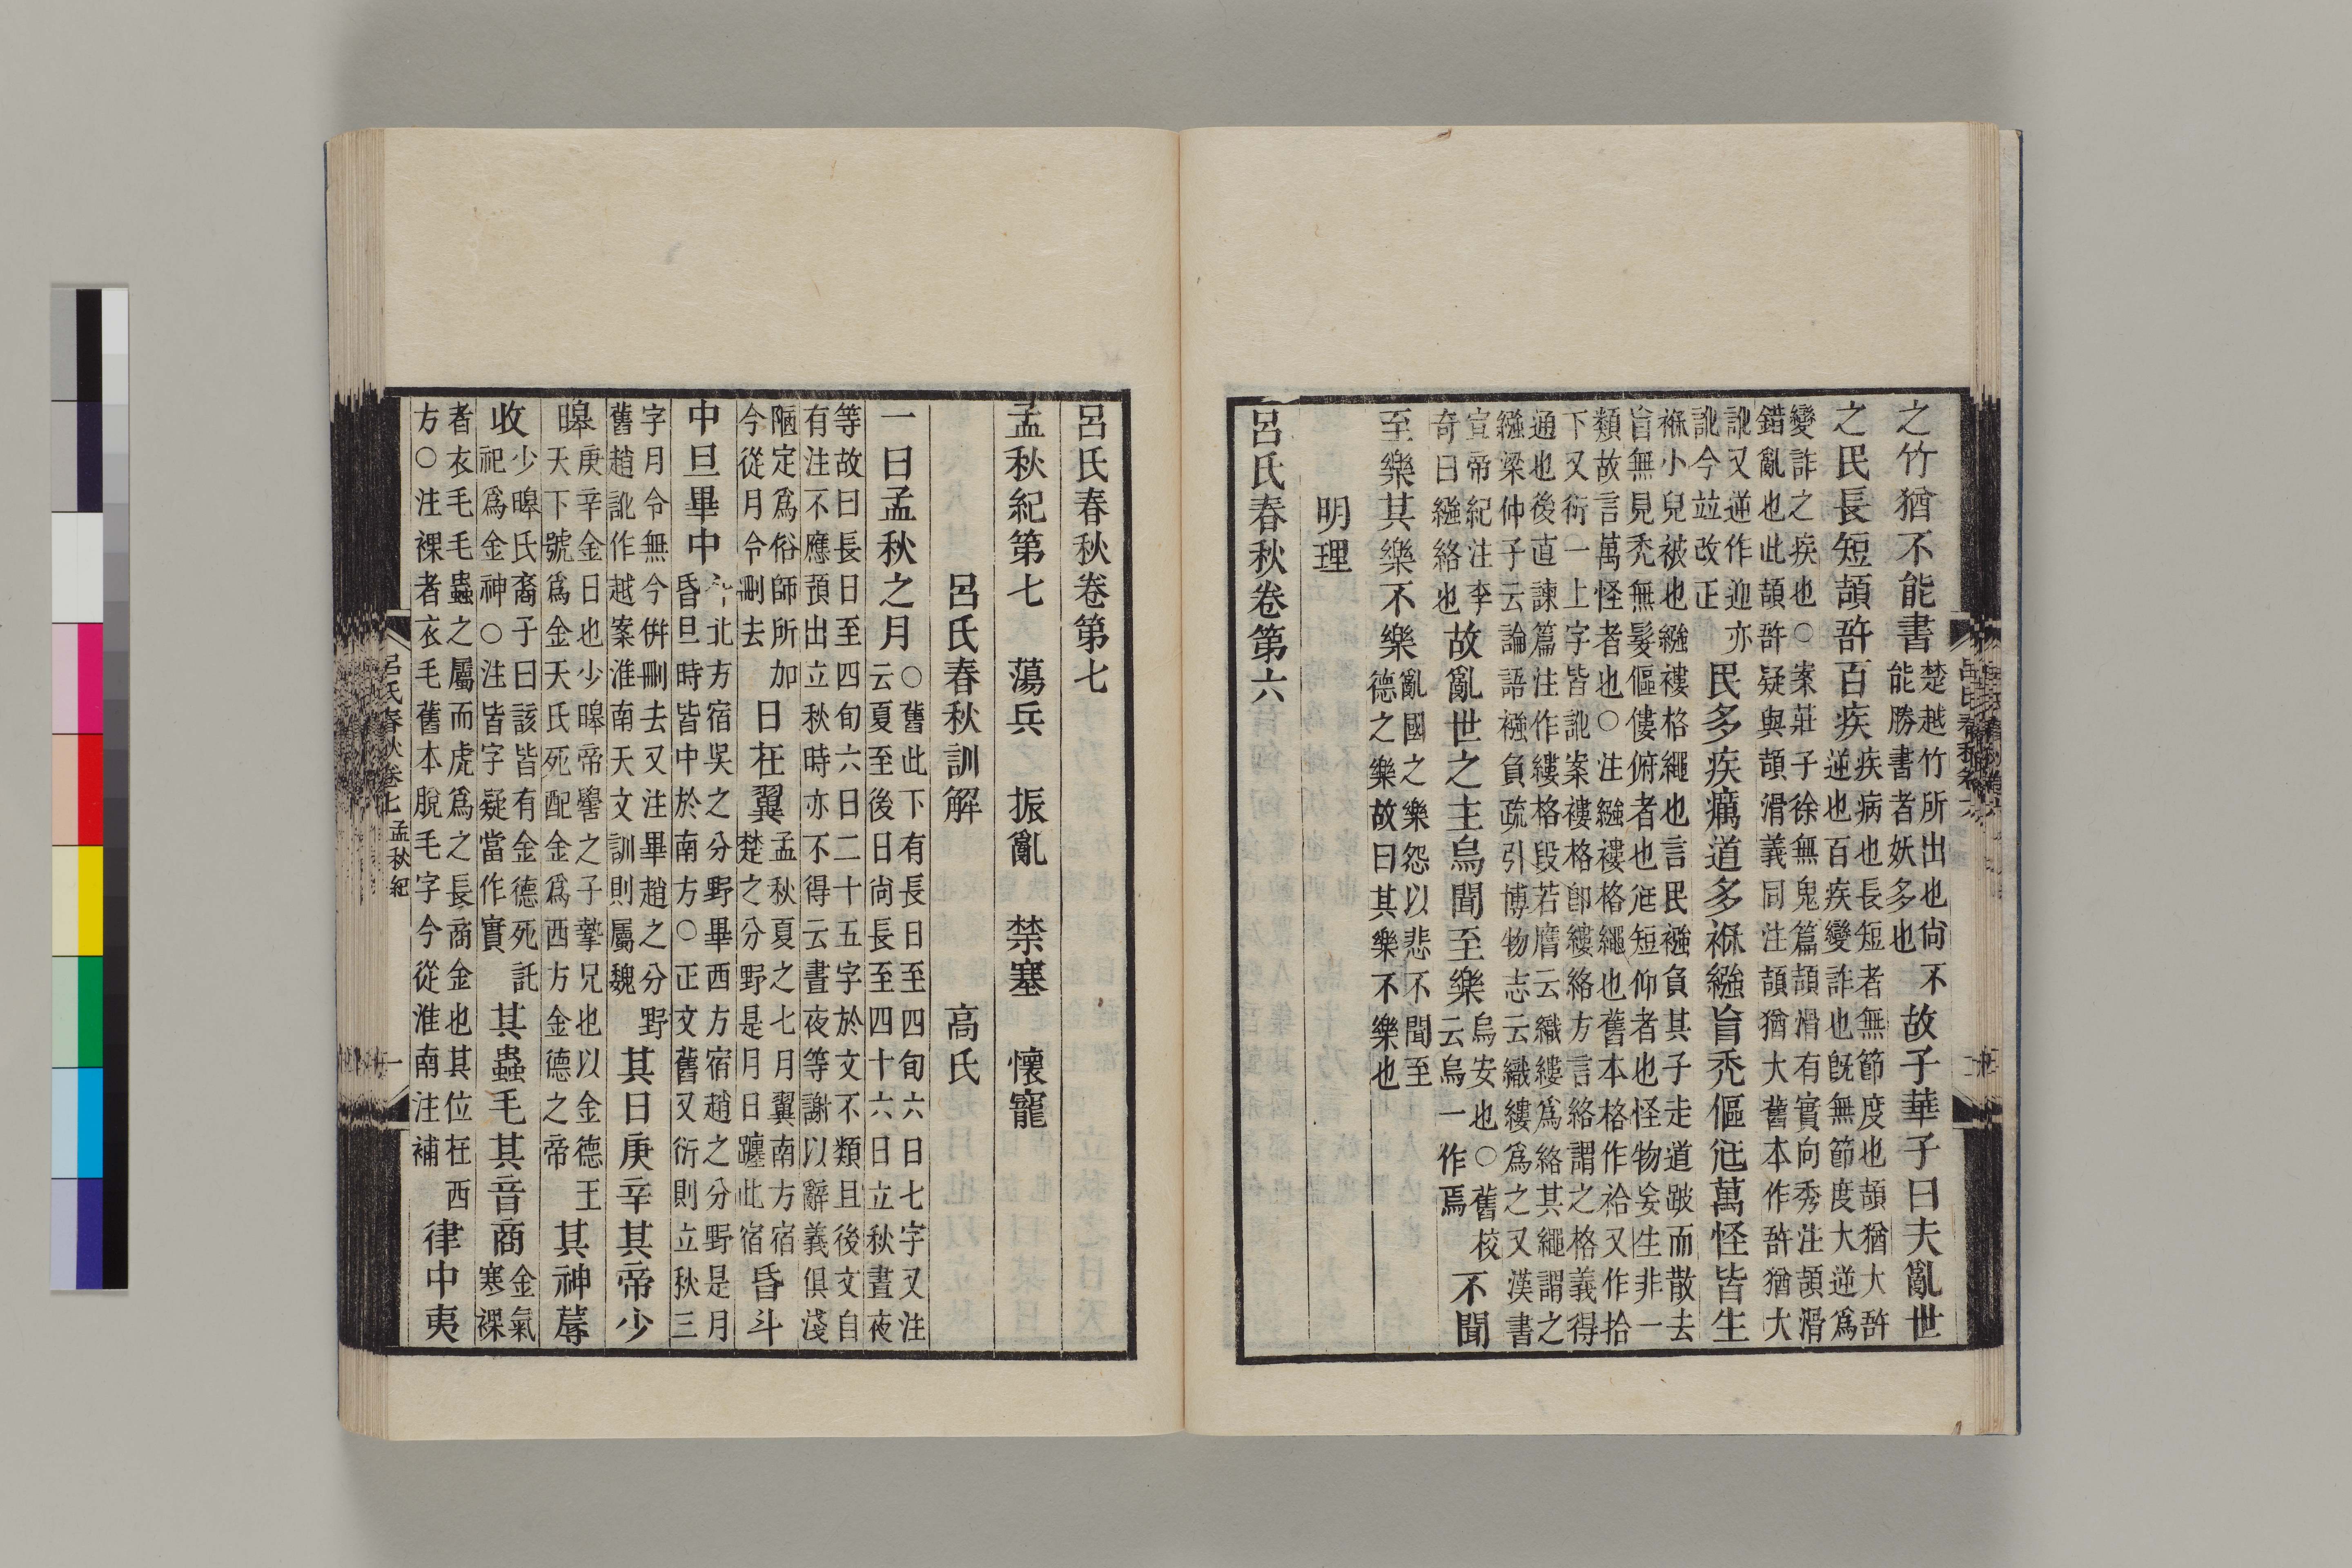 之竹猶不能書楚越竹所出也尚不能勝書者妖多也故子華子曰夫亂世
之民長短頡啎百疾疾病也長短者無節度也頡猶大啎逆也百疾變詐也旣無節度大逆爲
變詐之疾也○案莊子徐無鬼篇頡滑有實向秀注頡滑錯亂也此頡啎疑與頡滑義同注頡猶大舊本作啎猶大
訛又逆作迎亦訛今竝改正民多疾癘道多褓繈盲禿傴尪萬怪皆生
褓小兒被也繈褸格繩也言民襁負其子走道跛而散去盲無見禿無髮傴僂俯者也尪短仰者也怪物妄生非一
類故言萬怪者也○注繈褸格繩也舊本格作袷又作拾下又衍一上字皆訛案褸格卽縷絡方言絡謂之格義得
通也後直諫篇注作縷格段若膺云織縷爲絡其繩謂之繈梁仲子云論語襁負疏引博物志云織縷爲之又漢書
宣帝紀注李奇曰繈絡也故亂世之主烏聞至樂烏安也○舊校云烏一作焉不聞
至樂其樂不樂亂國之樂怨以悲不聞至德之樂故曰其樂不樂也
明理
呂氏春秋卷第六
呂氏春秋卷第七
孟秋紀第七 蕩兵 振亂 禁塞 懷寵
呂氏春秋訓解 高氏
一曰孟秋之月○舊此下有長日至四旬六日七字又注云夏至後日尚長至四十六日立秋晝夜
等故曰長日至四旬六日二十五字於文不類且後文自有注不應預出立秋時亦不得云晝夜等謝以辭義俱淺
陋定爲俗師所加今從月令刪去日在翼孟秋夏之七月翼南方宿楚之分野是月日躔此宿昏斗
中旦畢中斗北方宿吳之分野畢西方宿趙之分野是月昏旦時皆中於南方○正文舊又衍則立秋三
字月令無今併刪去又注畢趙之分野舊趙訛作越案淮南天文訓則屬魏其日庚辛其帝少
皞庚辛金日也少皞帝嚳之子摯兄也以金德王天下號爲金天氏死配金爲西方金德之帝其神蓐
收少皞氏裔子曰該皆有金德死託祀爲金神○注皆字疑當作實其蟲毛其音商金氣寒裸
者衣毛毛蟲之屬而虎爲之長商金也其位在西方○注裸者衣毛舊本脫毛字今從淮南注補律中夷
呂氏春秋卷七 孟秋紀 一